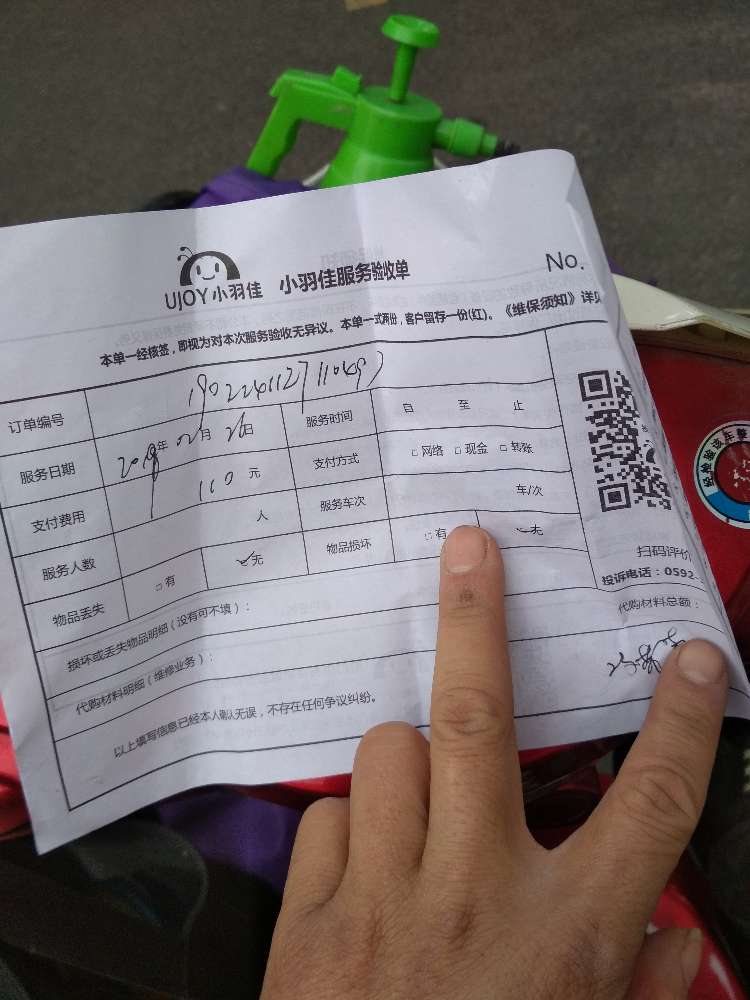 UJOY 小羽佳 小羽佳服务验收单
No.
本单一经核签，即视为对本次服务验收无异议。本单一式两份，客户留存一份(红)。《维保须知》详见
订单编号
服务日期 2019年 02月 26日 服务时间 自 至 止
支付费用 110 元 支付方式 □网络 □现金 □转账
服务人数 人 服务车次 车/次
物品丢失 □有 ✓无 物品损坏 □有 ✓无
损坏或丢失物品明细（没有可不填）：
代购材料明细（维修业务）：
以上填写信息已经本人确认无误，不存在任何争议纠纷。
扫码评价
投诉电话：0592
代购材料总额：
经检验该车整